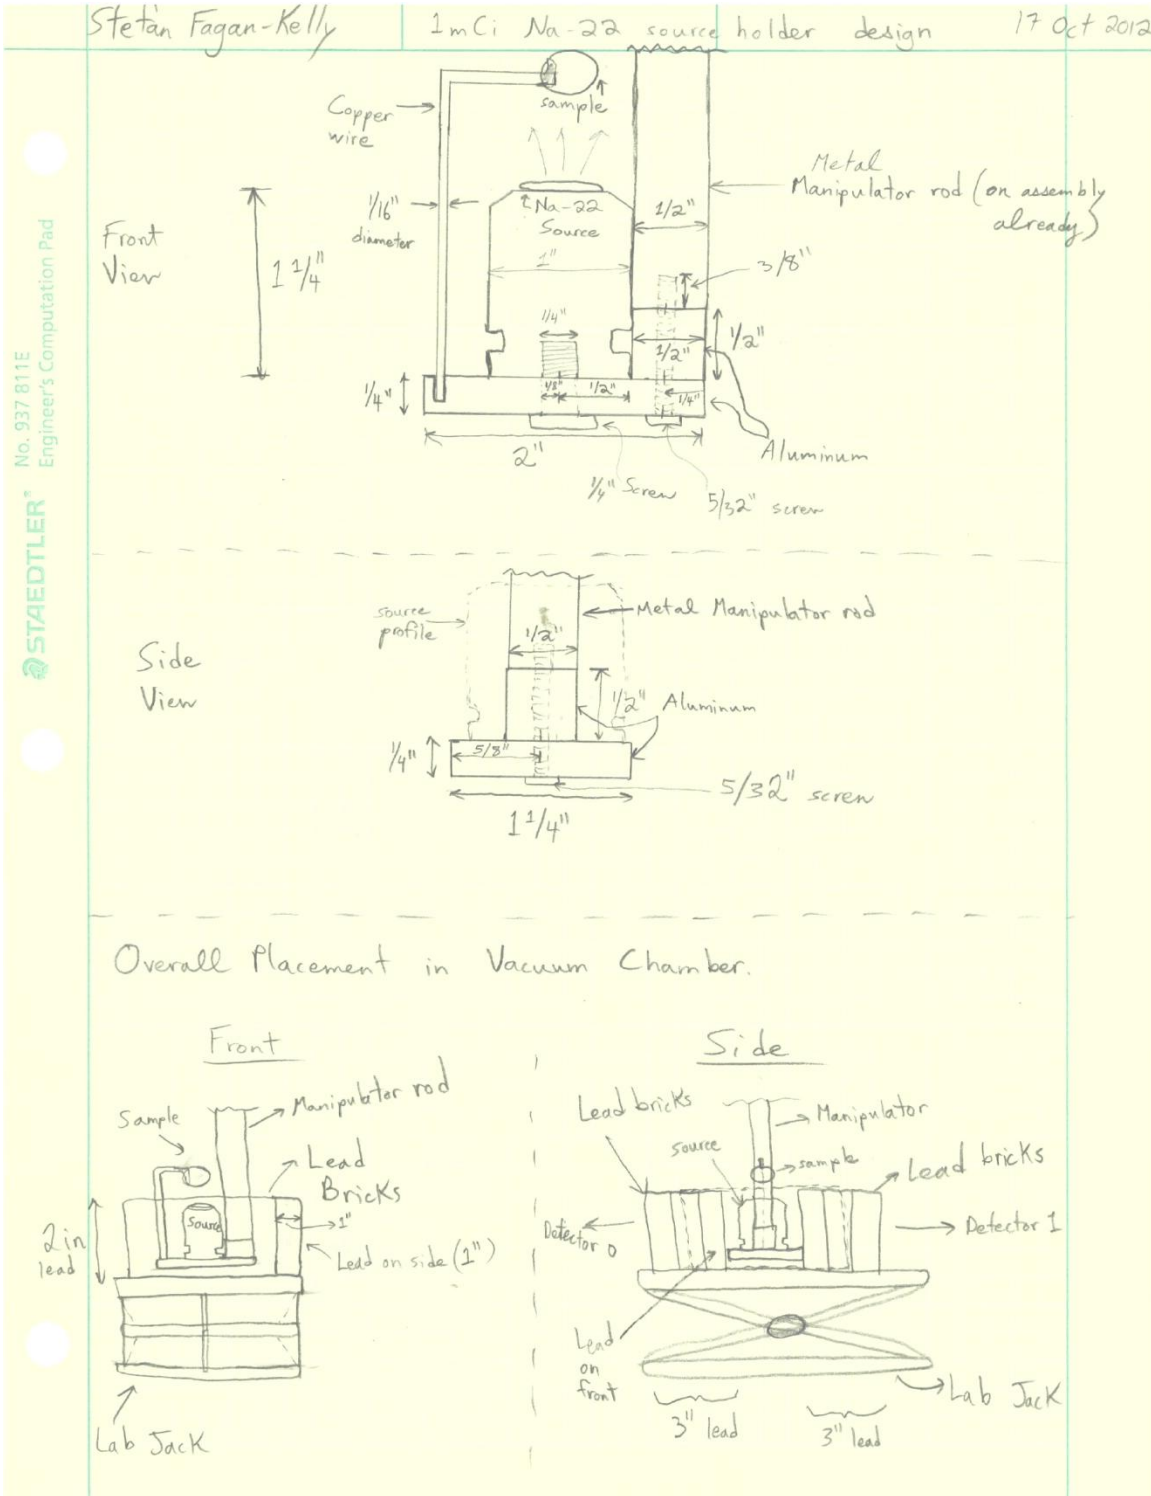 Stefan Fagan-Kelly
1mCi Na-22 source holder design
17 Oct 2012
No. 937 811E
Engineer's Computation Pad
STAEDTLER®
Front
View
Copper
wire
sample
Metal
Manipulator rod (on assembly
already)
1/16"
diameter
Na-22
Source
1/2"
3/8"
1"
1 1/4"
1/4"
1/2"
1/2"
1/4"
1/8"
1/2"
1/4"
2"
Aluminum
1/4" Screw
5/32" screw
Side
View
source
profile
Metal Manipulator rod
1/2"
1/2"
Aluminum
5/8"
1/4"
5/32" screw
1 1/4"
Overall Placement in Vacuum Chamber.
Front
Sample
Manipulator rod
Lead
Bricks
Source
1"
2 in
lead
Lead on side (1")
Lab Jack
Side
Lead bricks
Manipulator
source
sample
Lead bricks
Detector 0
Detector 1
Lead
on
front
Lab Jack
3" lead
3" lead